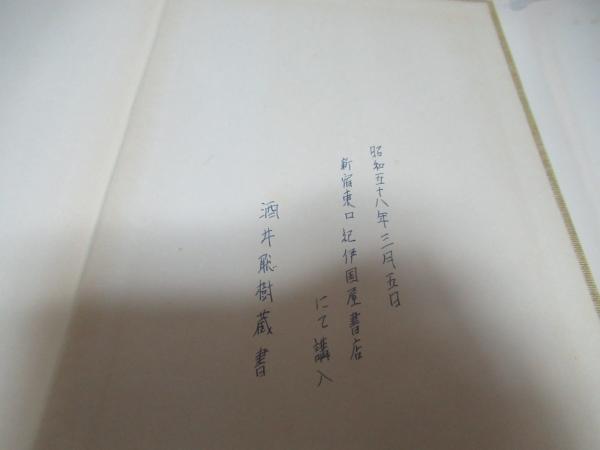 昭和五十八年三月五日
新宿東口紀伊国屋書店
にて講入
酒井聡樹蔵書